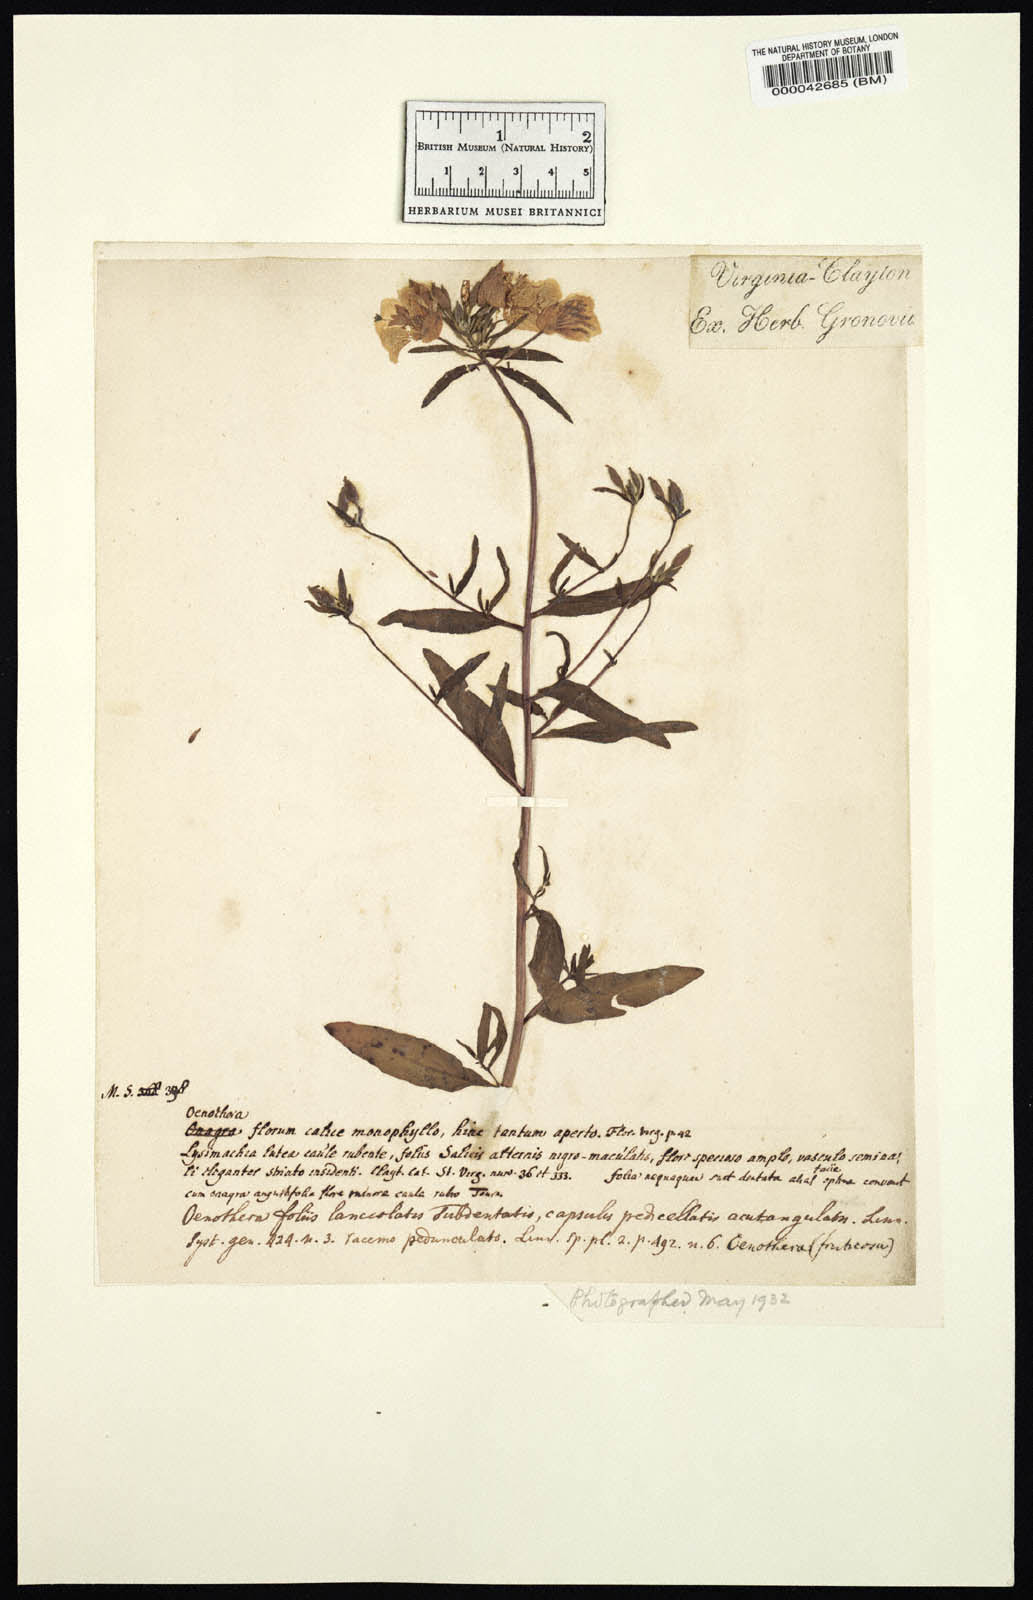 THE NATURAL HISTORY MUSEUM, LONDON
DEPARTMENT OF BOTANY
000042685 (BM)
1 2
BRITISH MUSEUM (NATURAL HISTORY)
1 2 3 4 5
HERBARIUM MUSEI BRITANNICI
Virginia-Clayton
Ex. Herb. Gronovii
M. S. 398
Oenothera
Onagra florum calice monophyllo, hinc tantum aperto. Flor. Virg. p. 42
Lysimachia lutea caule rubente, foliis Salicis alternis nigro-maculatis, flore specioso amplo, vasculo semina-
li eleganter striato insidenti. Clayt. Cat. St. Virg. num. 36 et 333. folia nequaquam sunt dentata alias facie optime convenit
cum onagra angustifolia flore minore caule rubro Tourn.
Oenothera foliis lanceolatis Subdentatis, capsulis pedicellatis acutangulatis. Linn.
Syst. gen. 424. n. 3. racemo pedunculato. Linn. Sp. pl. 2. p. 492. n. 6. Oenothera (fruticosa)
Photographed May 1932